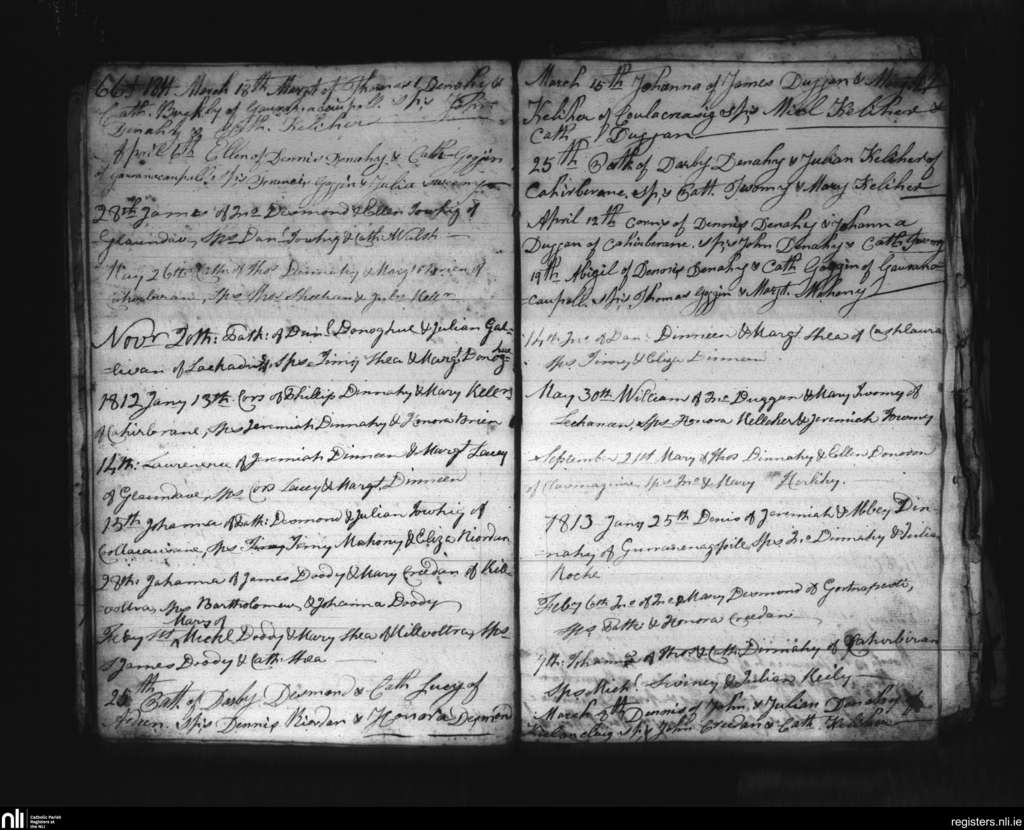 66} 1811. March 18th Margt of Thomas Denahy &
Cath. Buckley of Sprs John
Denahy & Cath. Keliher
April 6th Ellen of Dennis Denahy & Cath Goggin
of Gauranecaupall. Sprs Francis Goggin & Julia Sweeny
28th James of Jno Desmond & Ellen Towhig of
Glaundav, Sps Danl Towhig & Cath Walsh
May 26th Cath. of Thos Dinnahy & Margt Brien of
Sps Thos Sheehan & Julia
Novr 20th: Cath: of Danl Donoghue & Julian Gal-
=livan of Lackaduv, Sps Timy Shea & Margt Donoghue
1812 Jany 13th. Cors of Phillip Dinnahy & Mary Kellr
of Cahirberane, Sps Jeremiah Dinnahy & Honora Brien
14th: Lawrence of Jeremiah Dinneen & Margt Lacey
of Glaundave, Sps Cors Lacey & Margt Dinneen
15th Johanna of Patk: Desmond & Julian Towhig of
Collacaurane, Sps Timy Timy Mahony & Eliza Riordan
28th: Johanna of James Doody & Mary Creedan of Kill-
voltra, Sps Bartholomew & Johanna Doody
Mary of
Feby 1st Michl Doody & Mary Shea of Millvoltra, Sps
James Doody & Cath: Shea
25th Cath. of Darby Desmond & Cath Lucy of
Spr Dennis Riordan & Honora Desmond
March 15th Johanna of James Duggan & Margt
Keliher of Coulacreasig Sprs Micl Keliher &
Cath Duggan
25th Cath of Darby Denahy & Julian Keliher of
Cahirberane. Sprs Catt. Twomy & Mary Keliher
April 12th Corns of Dennis Denahy & Johanna
Duggan of Cahirberane. Sprs John Denahy & Cath Twomy
19th Abigil of Dennis Denahy & Cath Goggin of Gaurana-
caupall. Sprs Thomas Goggin & Margt. Mahony
14th Jno of Dan Dinneen & Margt Shea of Cashlaura
Sps Timy & Eliza Dinneen
May 30th William of Jno Duggan & Mary Twomy of
Lechanan, Sps Honora Kelleher & Jeremiah Twomy
September 21st Mary of Thos Dinnahy & Ellen Donovan
of Sps Jno & Mary Herlihy.
1813 Jany 25th Denis of Jeremiah & Abbey Din-
=nahy of Gurranenagpile, Sps Jno Dinnahy & Julia
Roche
Feby 6th Jno of Jno & Mary Desmond of
Sps Patk & Honora Creedan
7th: Johanna of Thos & Cath: Dinnahy of Cahirbiran
Sps Michl. Swiney & Julian Keily
March 4th Dennis of John & Julian Denahy
Sprs John Creedan & Cath. Keliher
nli Catholic Parish
Registers at
the NLI
registers.nli.ie